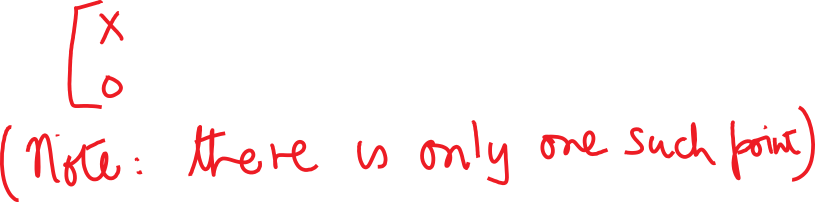 [x
0
(Note: there is only one such point)